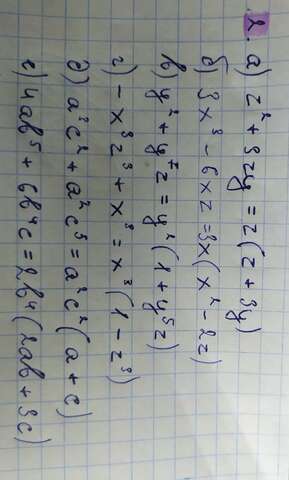 2. а) z² + 3zy = z(z + 3y)
б) 3x³ - 6xz = 3x(x² - 2z)
в) y² + y⁷z = y²(1 + y⁵z)
г) -x³z³ + x³ = x³(1 - z³)
д) a³c² + a²c³ = a²c²(a + c)
е) 4ab⁵ + 6b⁴c = 2b⁴(2ab + 3c)